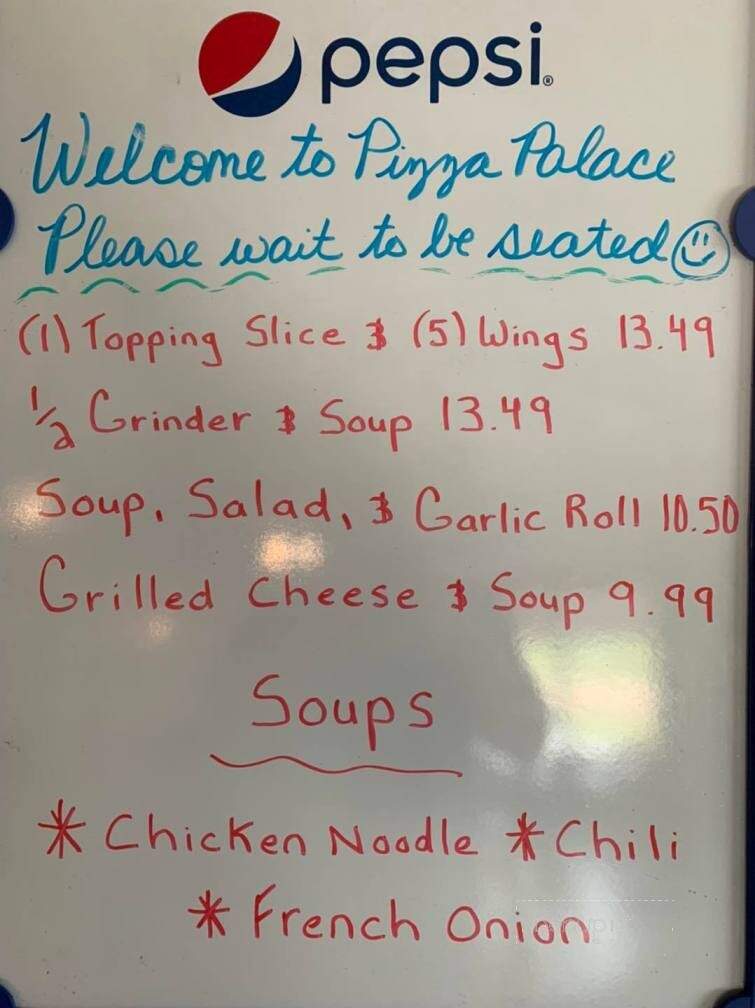 pepsi®
Welcome to Pizza Palace
Please wait to be seated
(1) Topping Slice & (5) Wings 13.49
1/2 Grinder & Soup 13.49
Soup, Salad, & Garlic Roll 10.50
Grilled Cheese & Soup 9.99
Soups
* Chicken Noodle * Chili
* French Onion